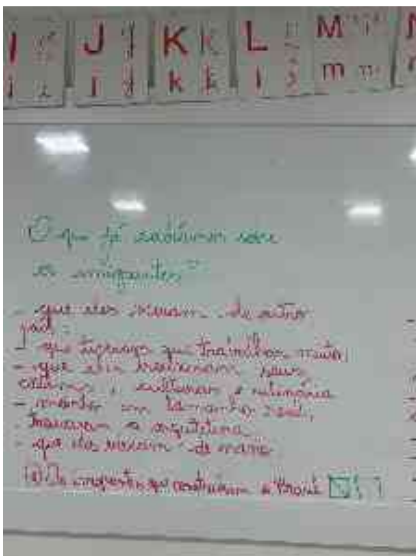 J j K k L l M m
J j K k L l m m
O que já sabíamos sobre
os imigrantes?
- que eles vieram de outro
país;
- que tiveram que trabalhar muito;
- que eles trouxeram seus
costumes, culturas e culinária
- 
trouxeram a arquitetura
- que eles vieram de navio
Os imigrantes que construíram o Brasil